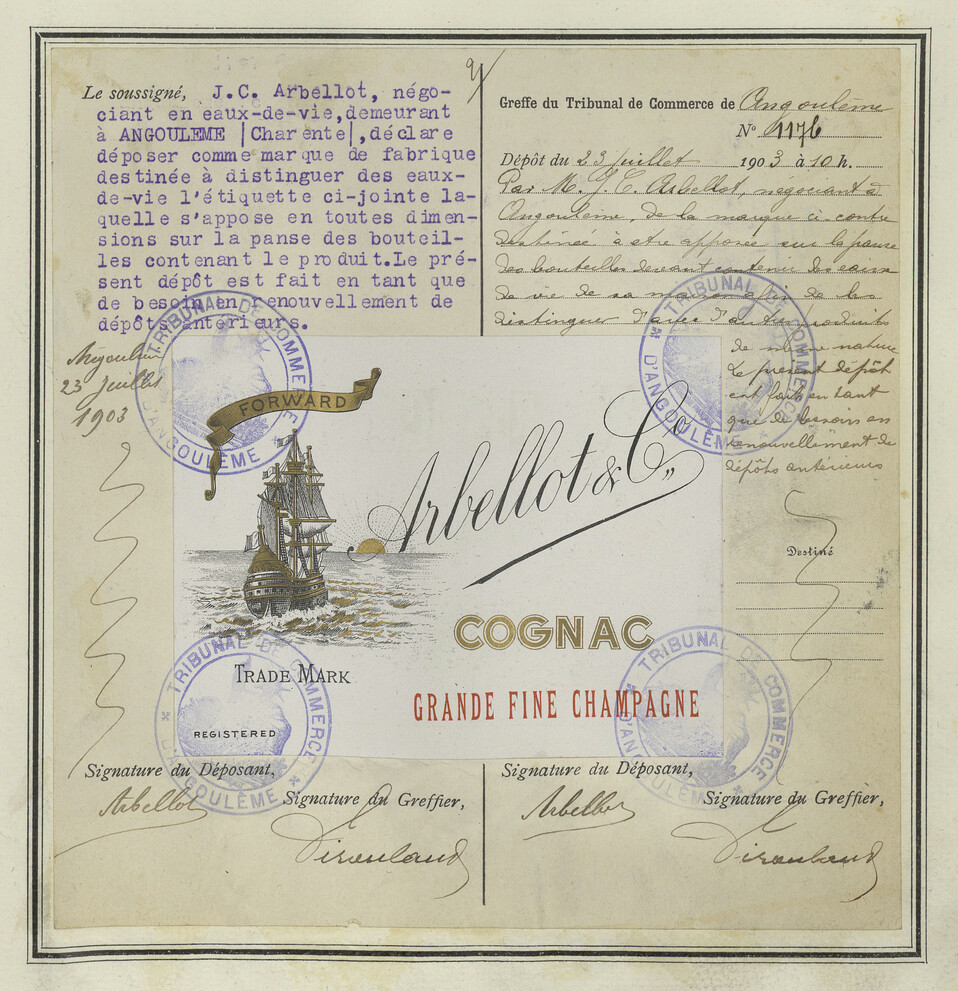 Le soussigné, J.C. Arbellot, négo-
ciant en eaux-de-vie, demeurant
à ANGOULEME |Charente|, déclare
déposer comme marque de fabrique
destinée à distinguer des eaux-
de-vie l'étiquette ci-jointe la-
quelle s'appose en toutes dimen-
sions sur la panse des bouteil-
les contenant le produit. Le pré-
sent dépôt est fait en tant que
de besoin en renouvellement de
dépôts antérieurs.
23 Juillet
1903
Greffe du Tribunal de Commerce de Angoulême
N° 1176
Dépôt du 23 juillet 1903 à 10 h.
Par M. J. C. Arbellot, négociant à
Angoulême, de la marque ci-contre
destinée à être apposée sur la panse
des bouteilles devant contenir des eaux
de vie de sa maison afin de les
distinguer d'avec d'autres produits
de même nature
Le présent dépôt
est fait en tant
que de besoin en
renouvellement de
dépôts antérieurs
Destiné
TRIBUNAL DE COMMERCE D'ANGOULÊME
TRIBUNAL DE COMMERCE D'ANGOULÊME
FORWARD
Arbellot & Co
COGNAC
GRANDE FINE CHAMPAGNE
TRADE MARK
REGISTERED
TRIBUNAL DE COMMERCE D'ANGOULÊME
TRIBUNAL DE COMMERCE D'ANGOULÊME
Signature du Déposant,
Arbellot
Signature du Greffier,
Signature du Déposant,
Arbellot
Signature du Greffier,